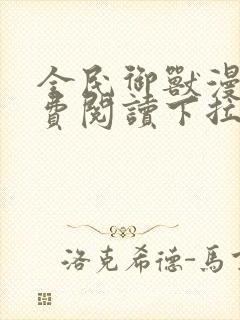 全民御獸漫
費閱讀下拉
洛克希德-馬